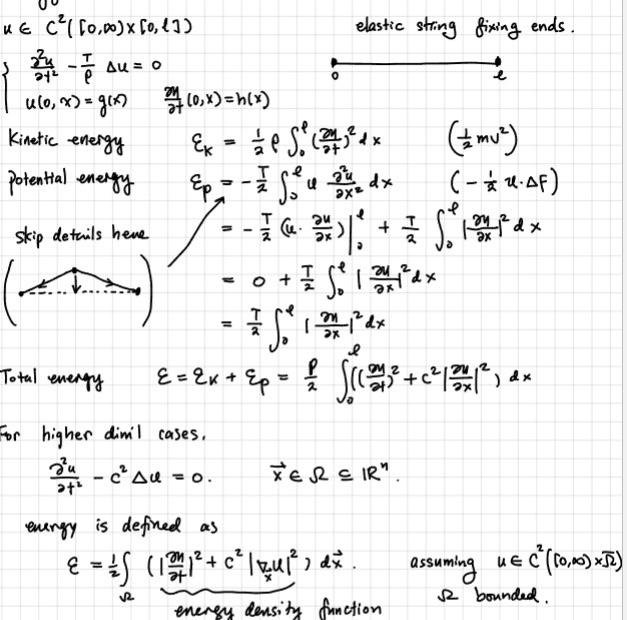 u ∈ C²([0,∞)×[0,l]) elastic string fixing ends.
{ ∂²u/∂t² - T/ρ Δu = 0
u(0,x) = g(x) ∂u/∂t (0,x) = h(x)
0 l
Kinetic energy ℰ_K = 1/2 ρ ∫₀^l (∂u/∂t)² dx (1/2 mv²)
potential energy ℰ_p = - T/2 ∫₀^l u ∂²u/∂x² dx (- 1/2 u·ΔF)
skip details here = - T/2 (u· ∂u/∂x)|₀^l + T/2 ∫₀^l |∂u/∂x|² dx
= 0 + T/2 ∫₀^l |∂u/∂x|² dx
= T/2 ∫₀^l |∂u/∂x|² dx
Total energy ℰ = ℰ_K + ℰ_p = ρ/2 ∫₀^l ((∂u/∂t)² + c²|∂u/∂x|²) dx
For higher dim'l cases,
∂²u/∂t² - c² Δu = 0. x⃗ ∈ Ω ⊆ ℝⁿ.
energy is defined as
ℰ = 1/2 ∫_Ω (|∂u/∂t|² + c² |∇_x u|²) dx⃗. assuming u ∈ C²([0,∞)×Ω̄)
energy density function Ω bounded.